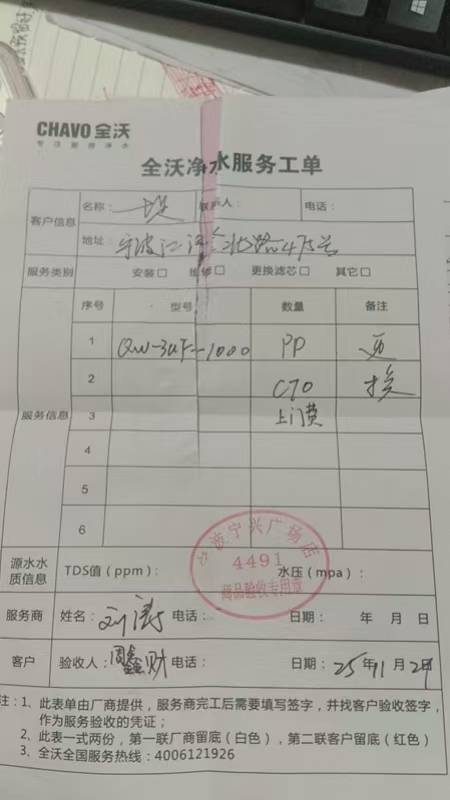 CHAVO 全沃
专注厨房净水
全沃净水服务工单
客户信息
名称： 联系人： 电话：
地址：宁波江 北路475号
服务类别 安装□ 维修□ 更换滤芯□ 其它□
服务信息
序号 型号 数量 备注
1 QW-3UF-1000 PP 更
2 CTO 换
3 上门费
4
5
6
宁波宁兴广场店
4491
商品验收专用章
源水水质信息 TDS值（ppm）： 水压（mpa）：
服务商 姓名：刘涛 电话： 日期： 年 月 日
客户 验收人：周鑫财 电话： 日期：25年11月2日
注：1、此表单由厂商提供，服务商完工后需要填写签字，并找客户验收签字，
作为服务验收的凭证；
2、此表一式两份，第一联厂商留底（白色），第二联客户留底（红色）
3、全沃全国服务热线：4006121926